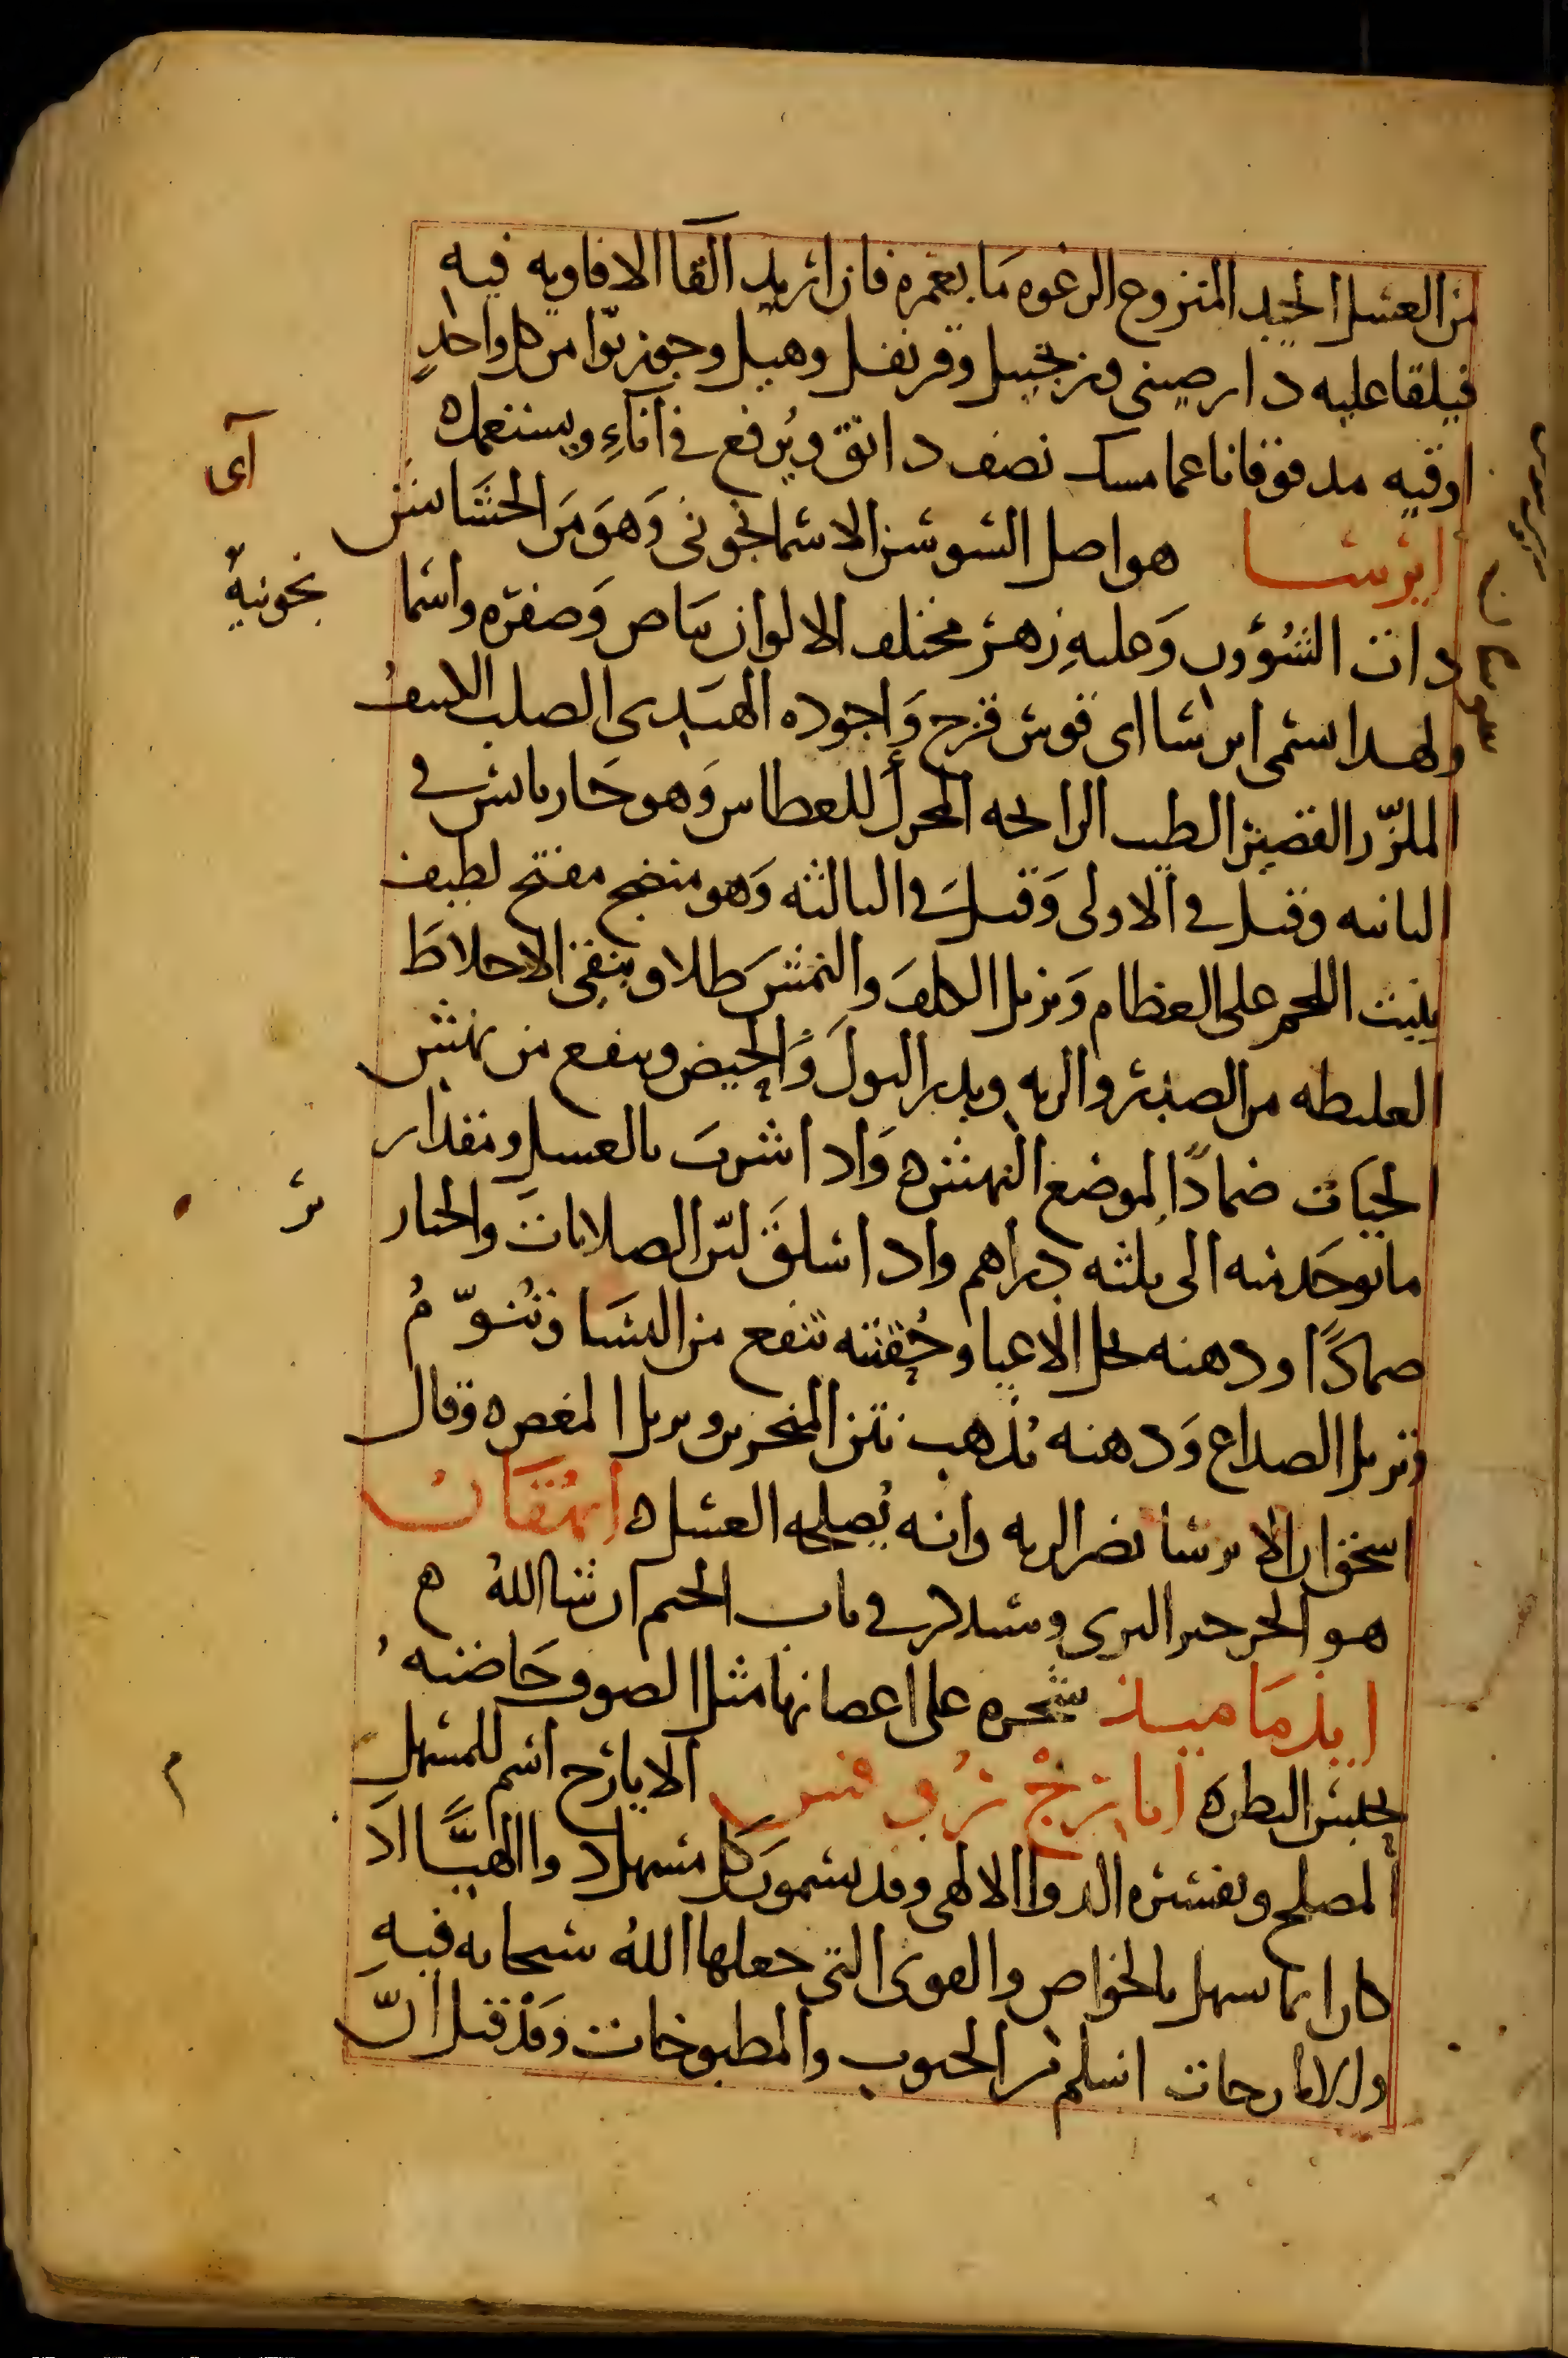 من العسل الجيد المنزوع الرغوه مَا يغمره فان اريد القا الافاويه فيه
فيلقا عليه دارصينى وزنجبيل وقرنفل وهيل وجوز بوّا من كل واحدٍ
اوقيه مدقوقا ناعما مسك نصف دانق ويُرفع فى اناءٍ ويستعمل ه
ايرسا هو اصل السوسن الاسمانجونى وَهوَ مَن الحشَايش
ذات السُوُق وَعليهِ زهر مختلف الالوان بيَاض وَصفره واسما
نجونيهٌ
ولهذا سمى ايرسا اى قوس قزح وَاجوده الهندى الصلب الكثيف
الملزّز القصير الطيب الرايحه المحرك للعطاس وَهو حَار يابس فى
الثانيه وقيل فى الاولى وَقيلَ فى الثالثه وَهو منضج مفتح لطيف
ينبت اللحم على العظام وَيزيل الكلفَ والنمشَ طلا وينقى الاخلاطَ
الغليظه من الصدر والريه ويدر البولَ وَالحيض وينفع من نهش
الحيَات ضمادًا لموضع النهشه وَاذا شربَ بالعسل ومقدار
ما يوخَذ منه الى ثلثه دراهم واذا سلقَ ليّن الصلابات والخنازير
ضمادًا ودهنه يحل الاعيا وحُقنته تنفع من النسَا وتُنوّمُ
وتزيل الصداع وَدهنه يُذهب نتن المنخرين ويزيل المغص ه وقال
اسحق ان الايرسا تضر الريه وانه يُصلحه العسل ه ايهُقَان
هو الجرجير البرى وسيذكر فى باب الجيم ان شا اللهُ ه
ايذمَاميذ شجره على اعصانها مثل الصوف خَاصته
يحبس البطن ه ايارج روفس الايارج اسم للمسهل
المصلح وتفسيره الدوا الالهى وقد يسمون كل مسهل دوا الهيًّا اذ
كان انما يسهل بالخواص والقوى التى جعلها اللهُ سبحانه فيهِ
والايارجات اسلم من الحبوب والمطبوخات وَقدْ قيل انّ